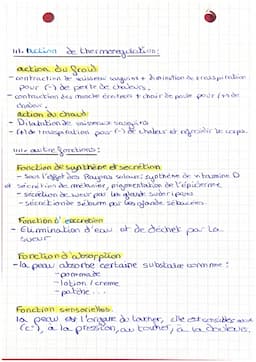 III. Action de thermoregulation:
action du froid
- contraction de vaisseaux sanguins + diminution de transpiration
pour (-) de perte de chaleurs.
- contraction des muscles érecteurs + chair de poule pour (+) de
chaleur.
action du chaud
- Dilatation de vaisseaux sanguins
- (+) de transpiration pour (-) de chaleur et refroidir le corps.
autre fonctions:
Fonction de synthèse et sécrétion
- sous l'effet des Rayons solaire: synthèse de vitamine D
et sécrétion de mélanine, pigmentation de l'épiderme
- sécrétion de sueur par les glande sudoripares
- sécrétion de sébum par les glande sébacées
Fonction d'excretion
- Elimination d'eau et de déchet par la
sueur
Fonction d'absorption
- la peau absorbe certaine substance comme:
- pommade
- lotion / crème
- patchs...
Fonction sensorielles
la peau est l'organe du toucher, elle est sensible aux
(c°), à la pression, au toucher, à la douleurs.